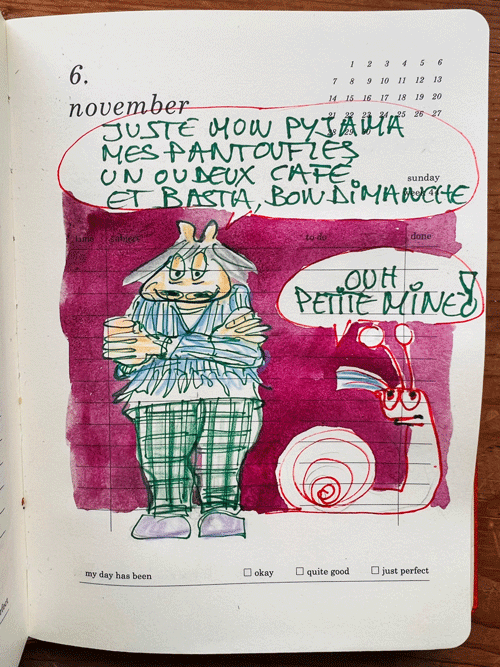 6.
november
1 2 3 4 5 6
7 8 9 10 11 12 13
14 15 16 17 18 19 20
21 22 23 24 25 26 27
28 29
sunday
JUSTE MON PYJAMA
MES PANTOUFLES
UN OU DEUX CAFÉ
ET BASTA, BON DIMANCHE
time subject to do done
OUH
PETITE MINE!
my day has been okay quite good just perfect